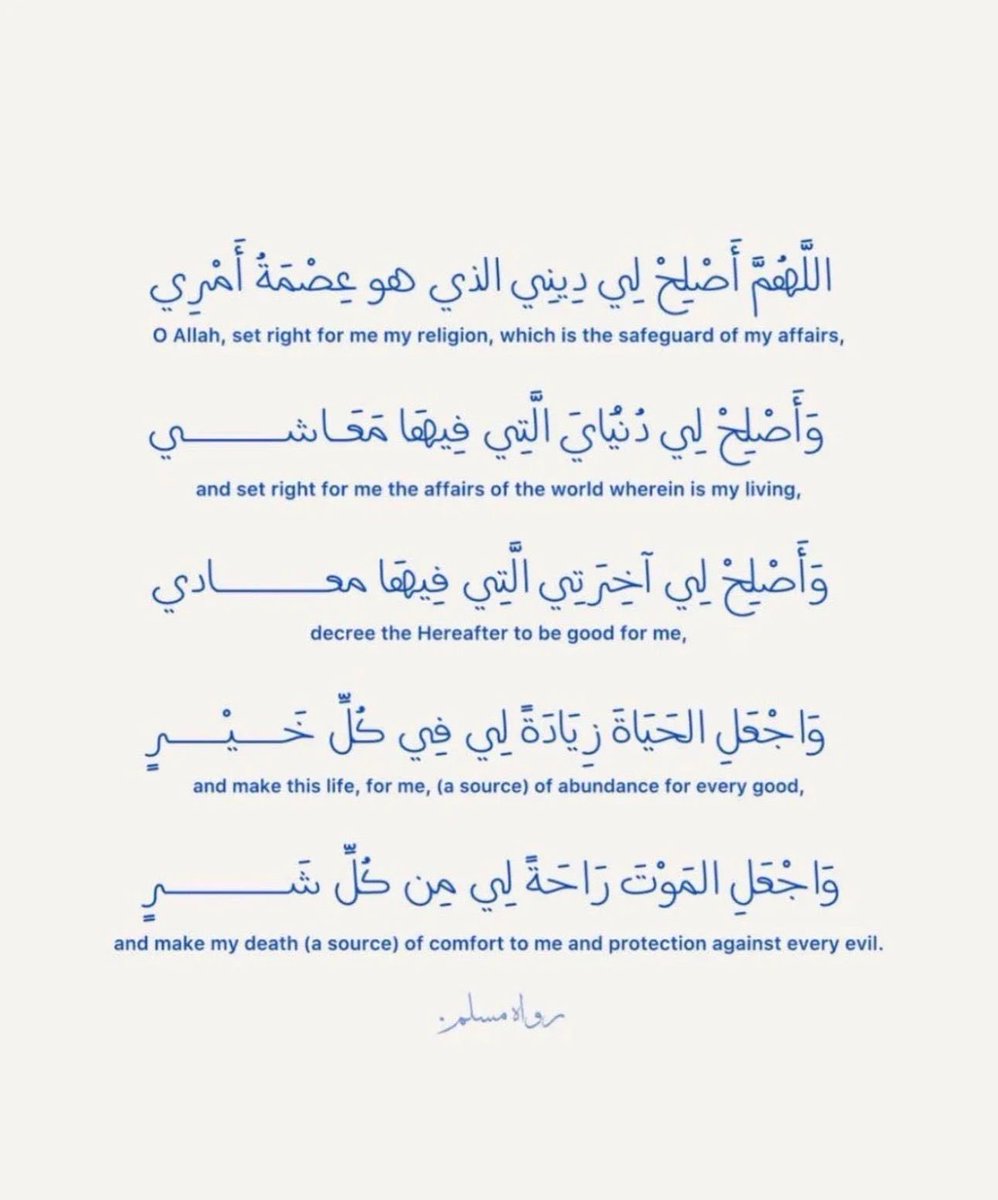 اللَّهُمَّ أَصْلِحْ لِي دِينِي الذي هو عِصْمَةُ أَمْرِي
O Allah, set right for me my religion, which is the safeguard of my affairs,
وَأَصْلِحْ لِي دُنْيَايَ الَّتِي فِيهَا مَعَاشـــــــي
and set right for me the affairs of the world wherein is my living,
وَأَصْلِحْ لِي آخِرَتِي الَّتِي فِيهَا معـــــــادي
decree the Hereafter to be good for me,
وَاجْعَلِ الحَيَاةَ زِيَادَةً لِي فِي كُلِّ خَـــيْـــــرٍ
and make this life, for me, (a source) of abundance for every good,
وَاجْعَلِ المَوْتَ رَاحَةً لِي مِن كُلِّ شَـــــــرٍ
and make my death (a source) of comfort to me and protection against every evil.
رواه مسلم.